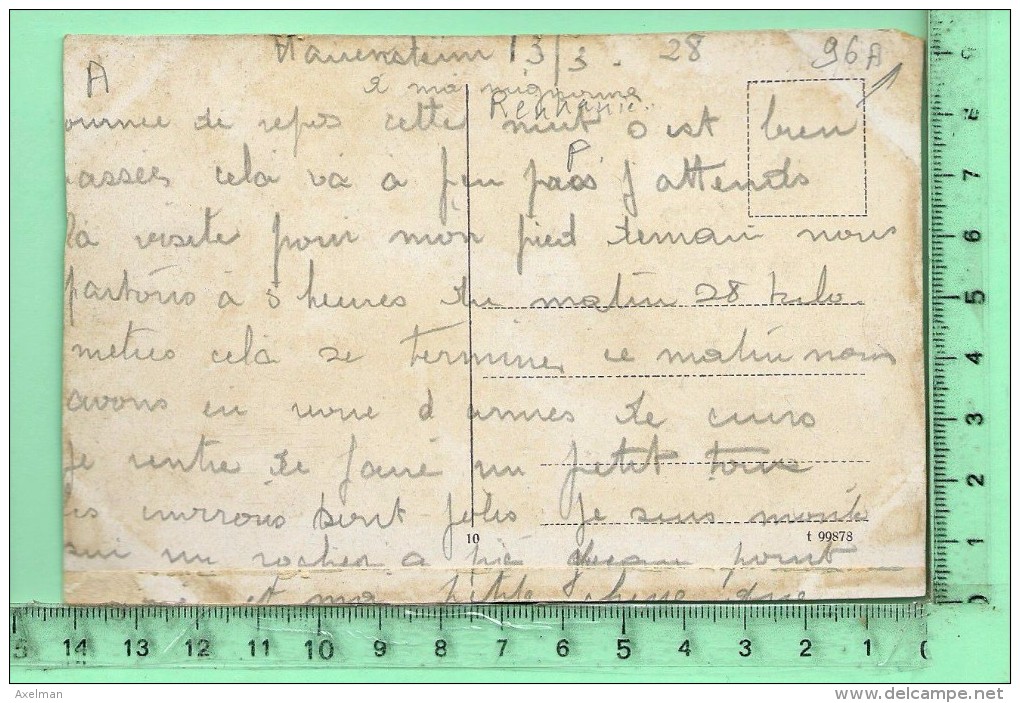 Hauenstein 13/3. 28
96A
A
a ma mignonne
Rennanie.
ournee de repos cette nuit c est bien
P
assees cela va a peu pres j attends
la visite pour mon pied demain nous
partons a 5 heures du matin 28 kilo.
metres cela se termine ce matin nous
avons eu revue d armes de cuirs
je rentre de faire un petit tour
les environs sont jolis je suis monté
10
t 99878
sur un rocher a pic
et ma petite
15 14 13 12 11 10 9 8 7 6 5 4 3 2 1 0
8 7 6 5 4 3 2 1 0
Axelman
www.delcampe.net